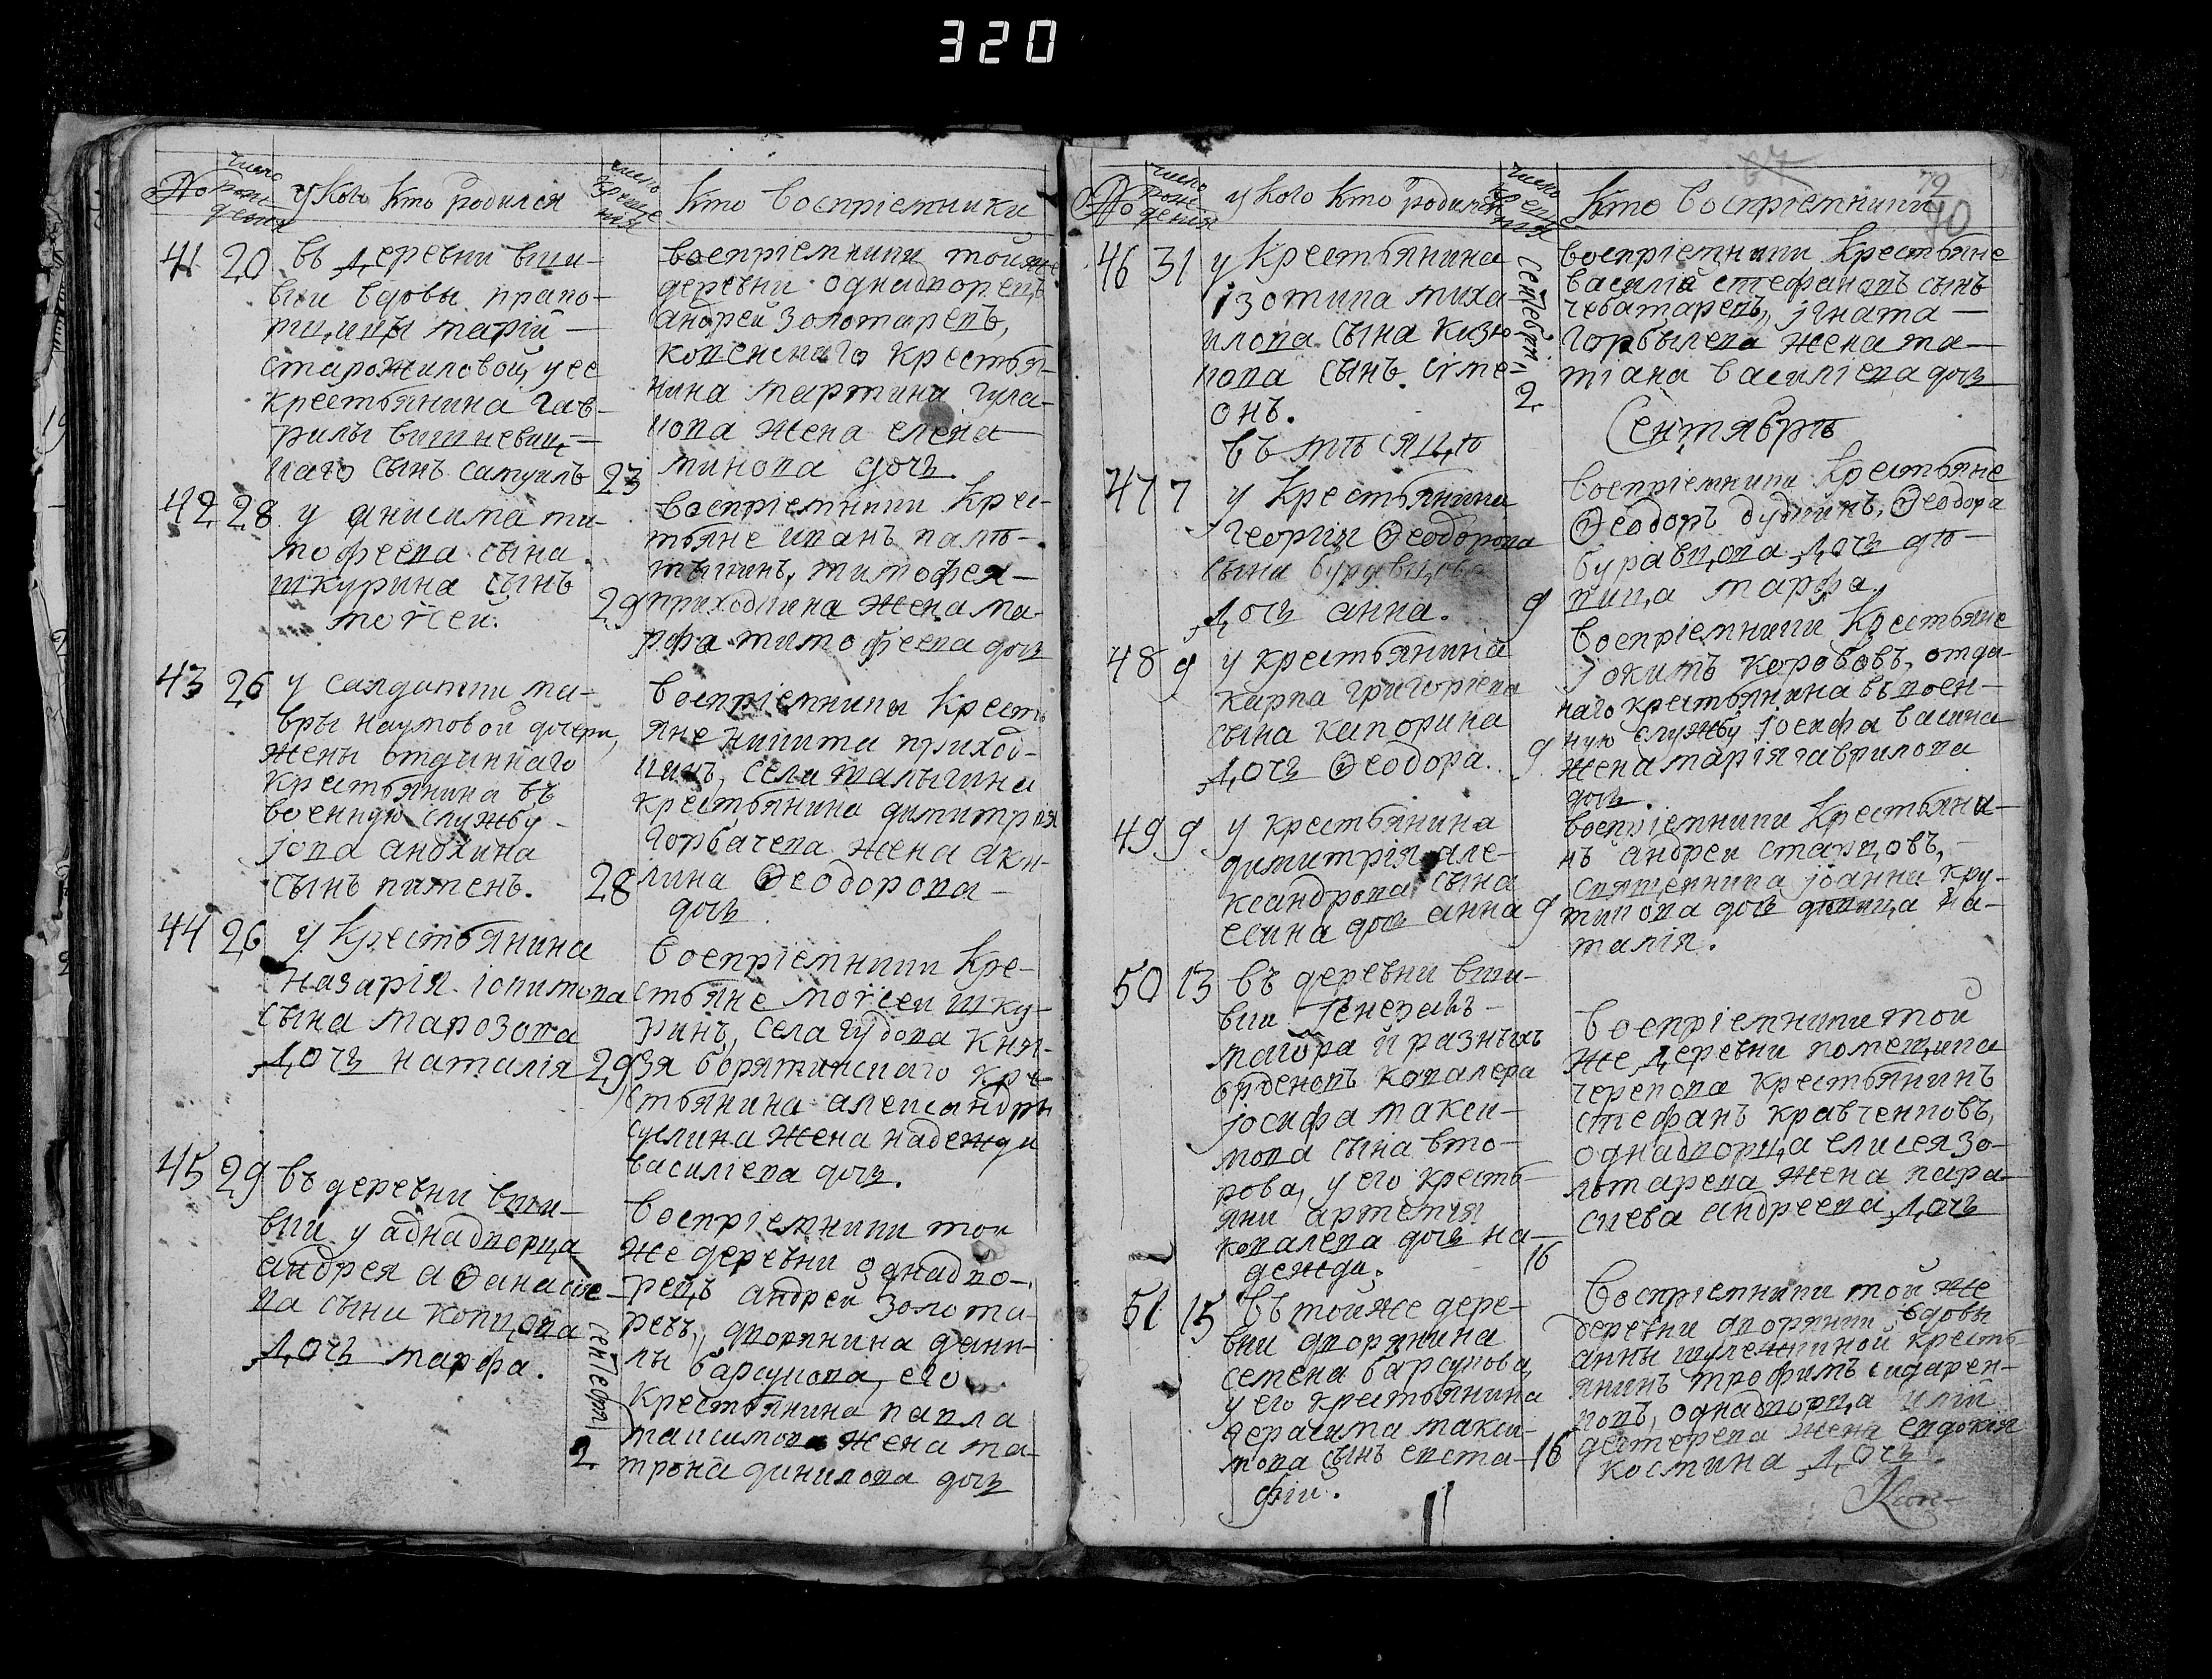 320
№ число рождения у Кого Кто родился число крещения Кто Воспрiемники
41 20 въ деревни вши-
вки вдовы прапо-
рщицы марiй
старожиловой, у ее
крестьянина гав-
рилы вишневец-
каго сынъ самуилъ 23
воспрiемники тойже
деревни однадворецъ
андрей золотаревъ,
крестья-
нина мартина гула-
кова жена елена
минова дочь
42 28 у анисима ти-
мофеева сына
шкурина сынъ
моѵсей. 29
Воспрiемники крес-
тьяне иванъ
тимофея
приходкина жена ма-
рфа тимофеева дочь
43 26 у салдатки ма-
вры наумовой дочери,
жены отданнаго
крестьянина въ
военную службу
iова анохина
сынъ пименъ. 28
Воспрiемники Кресть
яне никита приход-
кинъ, села малыгина
крестьянина димитрия
горбачева жена аку-
лина Ѳеодорова
дочь
44 26 у Крестьянина
назарiя
сына марозова
дочь наталiя 29
Воспрiемники Кре-
стьяне моѵсей шку-
ринъ, села гудова Кня-
зя борятинскаго кре-
стьянина александры
суслина жена надежда
василiева дочь.
45 29 въ деревни вши-
вки у аднадворца
андрея аѲанасье-
ва сына копцова
дочь марфа. сентебрiя 2
Воспрiемники той
же деревни однадво-
рецъ андрей Золота-
ревъ, дворянина дани-
лы барсукова, его
крестьянина павла
максимова жена ма-
трона данилова дочь
67 72 70
№ число рождения у кого Кто родился число крещения Кто Воспрiемники
46 31 у Крестьянина
iзотипа миха
илова сына Казю
кова сынъ сѵме-
онъ. сентебрiя 2
воспрiемники Крестьяне
василiй стефановъ сынъ
чеватаревъ, iгната
Горбылева жена та-
тiана василiева дочь
въ мѣсяцѣ Сентябрѣ
47 7 у Крестьянина
георгия Ѳеодорова
сына буравцова
дочь анна. 9
Воспрiемники Крестьяне
Ѳеодоръ дудкинъ, Ѳеодора
буравцова дочь дѣ-
вица марфа.
48 9 у крестьянина
карпа григориева
сына капорина
дочь Ѳеодора. 9
Воспрiемники Крестьяне
Iокимъ коробовъ, отда-
наго крестьянина въ воен-
ную службу Iосифа васина
жена марiя гаврилова
дочь.
49 9 у крестьянина
димитрiя але-
ксандрова сына
есина дочь анна 9
воспрiемники Крестьяни-
нъ андреи старцовъ,
священника iоанна кру-
тикова дочь девица на-
талiя.
50 13 въ деревни вши-
вки генералъ
маиора и разныхъ
орденовъ ковалера
iосифа макси-
мова сына вто-
рова, у его кресть-
яни артемiя
ковалева дочь на-
дежда. 16
Воспрiемники той
же деревни помещика
черепова крестьянинъ
стефанъ кравченковъ,
однадворца елисея зо-
лотарева жена пара-
скева андреева дочь
51 15 въ тойже дере-
вни дворянина
семена барсукова,
у его крестьянина
герасима макси-
мова сынъ евста-
фiй. 16
Воспрiемники той же
деревни дворянки, вдовы
анны шулежкиной кресть-
янинъ трофимъ сидарен-
ковъ, однадворца илiи
дегтерева жена евдокiя
костина дочь